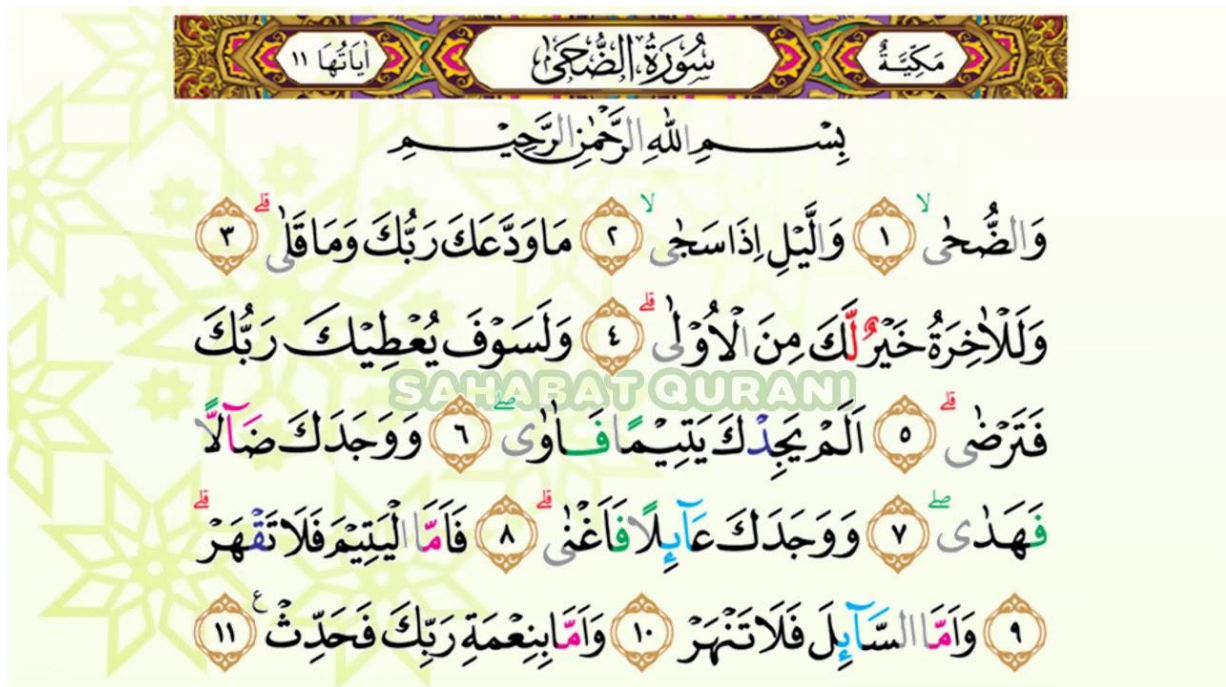 مَكِّيَّةٌ سُوْرَةُ الضُّحَىٰ اٰيَاتُهَا ١١
بِسْمِ اللّٰهِ الرَّحْمٰنِ الرَّحِيْمِ
وَالضُّحٰىۙ ١ وَالَّيْلِ اِذَا سَجٰىۙ ٢ مَا وَدَّعَكَ رَبُّكَ وَمَا قَلٰىۗ ٣
وَلَلْاٰخِرَةُ خَيْرٌ لَّكَ مِنَ الْاُوْلٰىۗ ٤ وَلَسَوْفَ يُعْطِيْكَ رَبُّكَ
SAHABAT QURANI
فَتَرْضٰىۗ ٥ اَلَمْ يَجِدْكَ يَتِيْمًا فَاٰوٰىۖ ٦ وَوَجَدَكَ ضَاۤلًّا
فَهَدٰىۖ ٧ وَوَجَدَكَ عَاۤىِٕلًا فَاَغْنٰىۗ ٨ فَاَمَّا الْيَتِيْمَ فَلَا تَقْهَرْۗ
٩ وَاَمَّا السَّاۤىِٕلَ فَلَا تَنْهَرْ ١٠ وَاَمَّا بِنِعْمَةِ رَبِّكَ فَحَدِّثْ ࣖ ١١